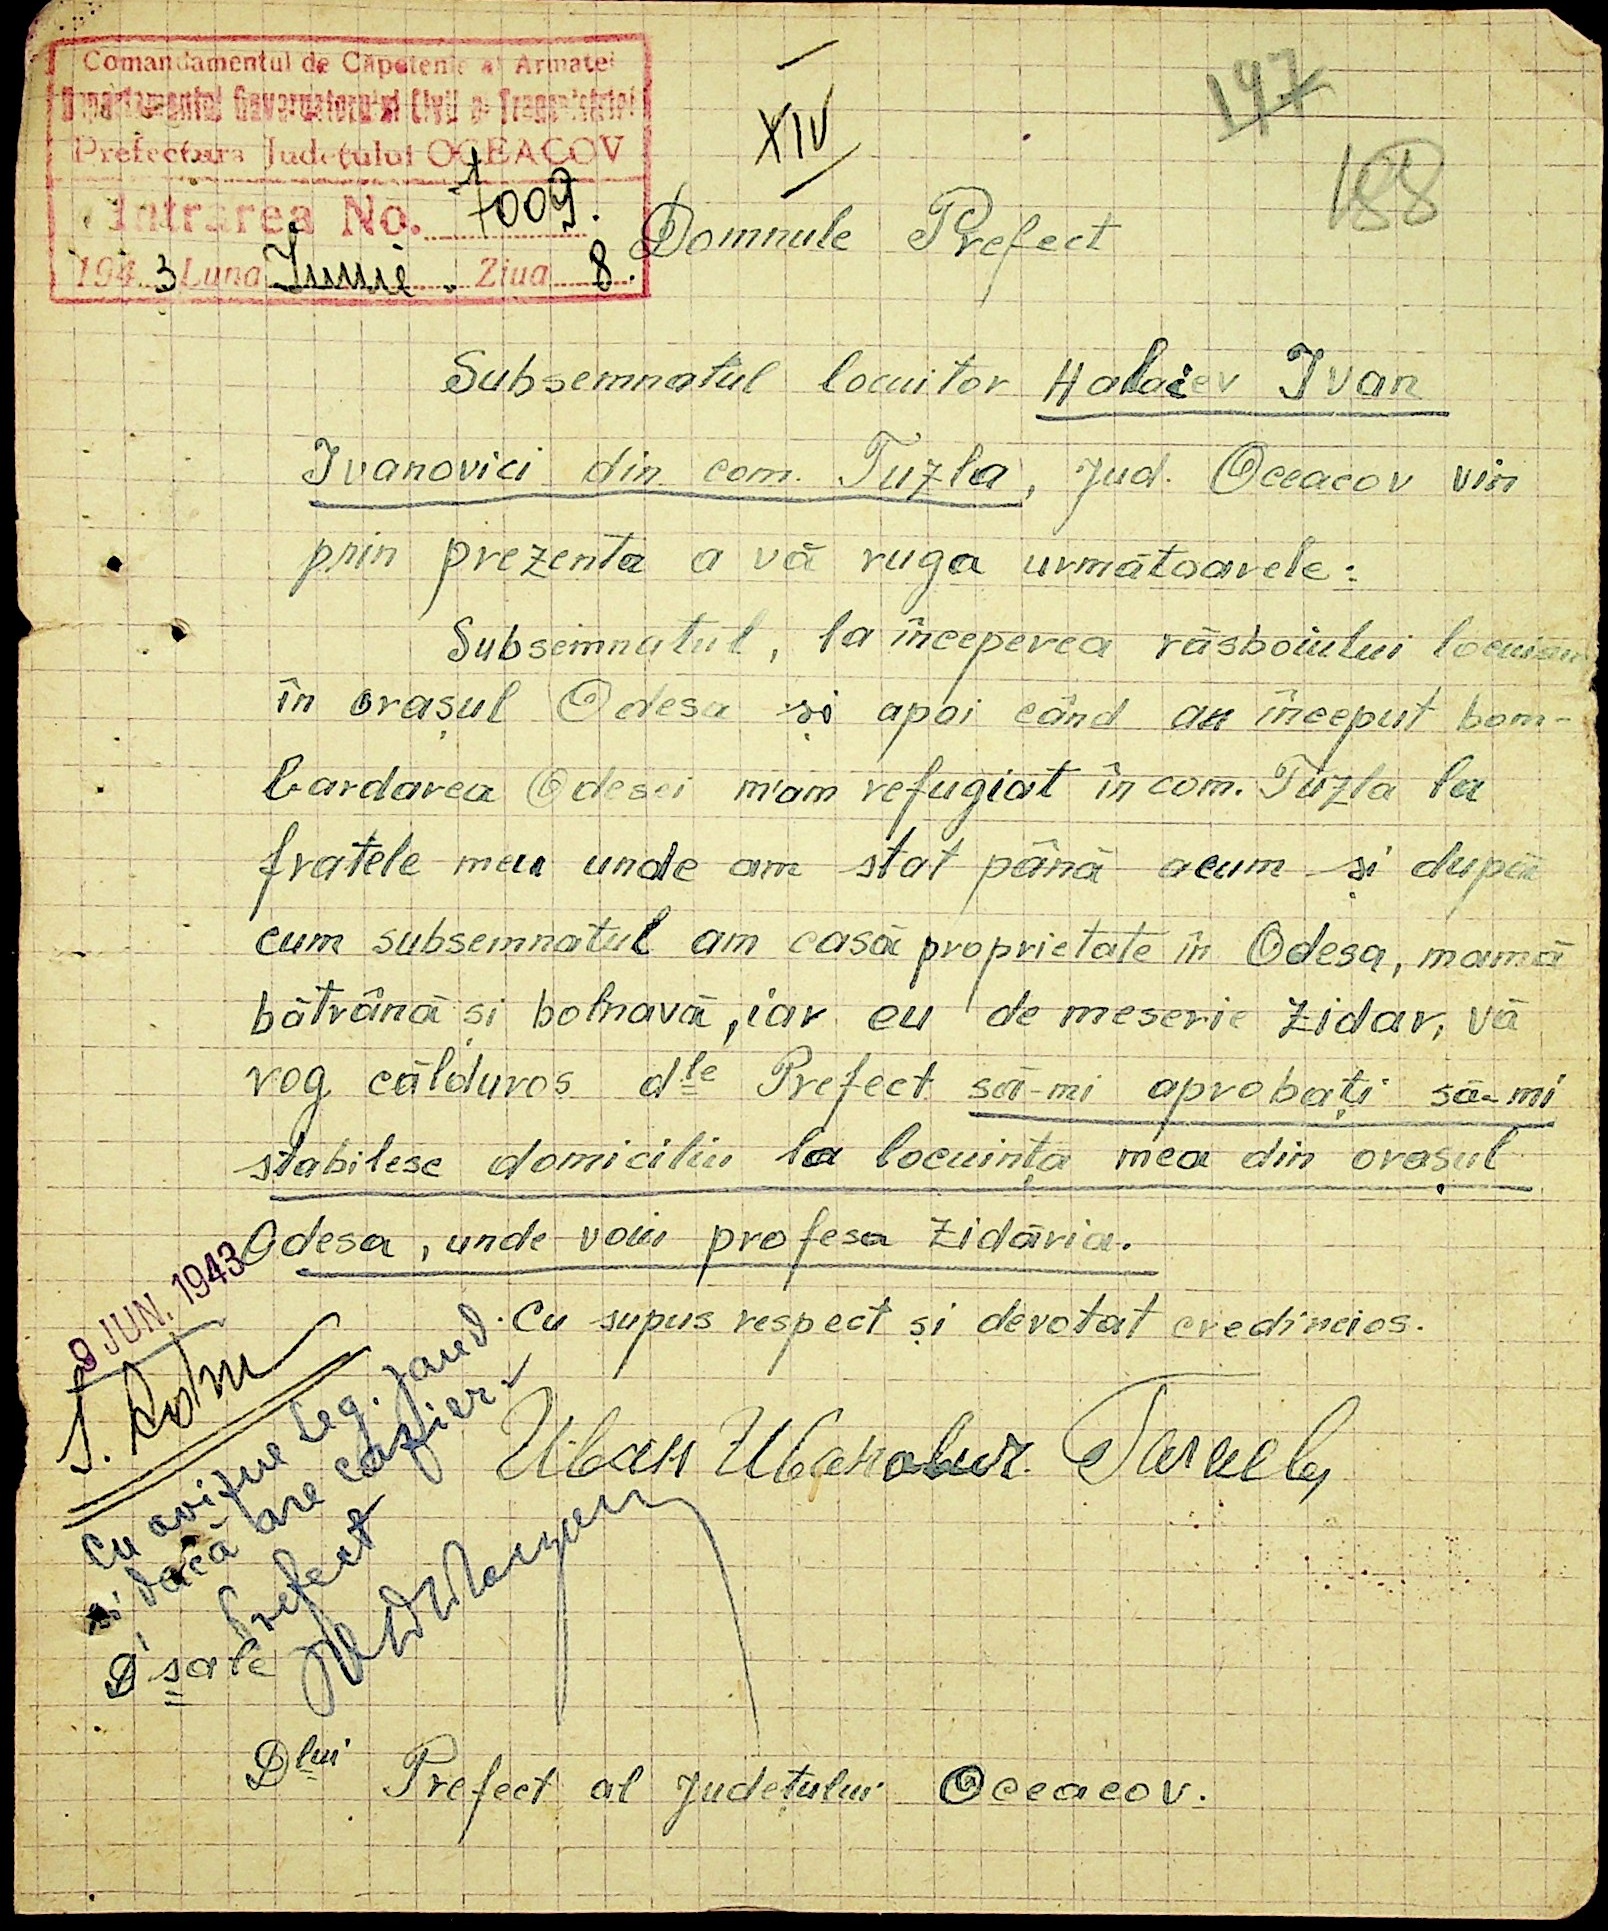 Comandamentul de Căpetenie al Armatei
Departamentul Guvernatorului Civil al Transnistriei
Prefectura Județului OCEACOV
Intrarea No. 7009.
1943 Luna Iunie. Ziua 8.
XIV
147
188
Domnule Prefect
Subsemnatul locuitor Halaiev Ivan
Ivanovici din com. Tuzla, Jud. Oceacov vin
prin prezenta a vă ruga următoarele:
Subsemnatul, la începerea răsboiului locuiam
în orașul Odesa și apoi când au început bom-
bardarea Odesei m'am refugiat în com. Tuzla la
fratele meu unde am stat până acum și după
cum subsemnatul am casă proprietate în Odesa, mamă
bătrână și bolnavă, iar eu de meserie zidar, vă
rog călduros dle Prefect să-mi aprobați să-mi
stabilesc domiciliu la locuința mea din orașul
Odesa, unde voiu profesa zidăria.
Cu supus respect și devotat credincios.
9 JUN. 1943
Иван Иванович
Cu avizul Leg. Jand.
și dacă are cazier
Prefect
D-sale
Dlui Prefect al Județului Oceacov.